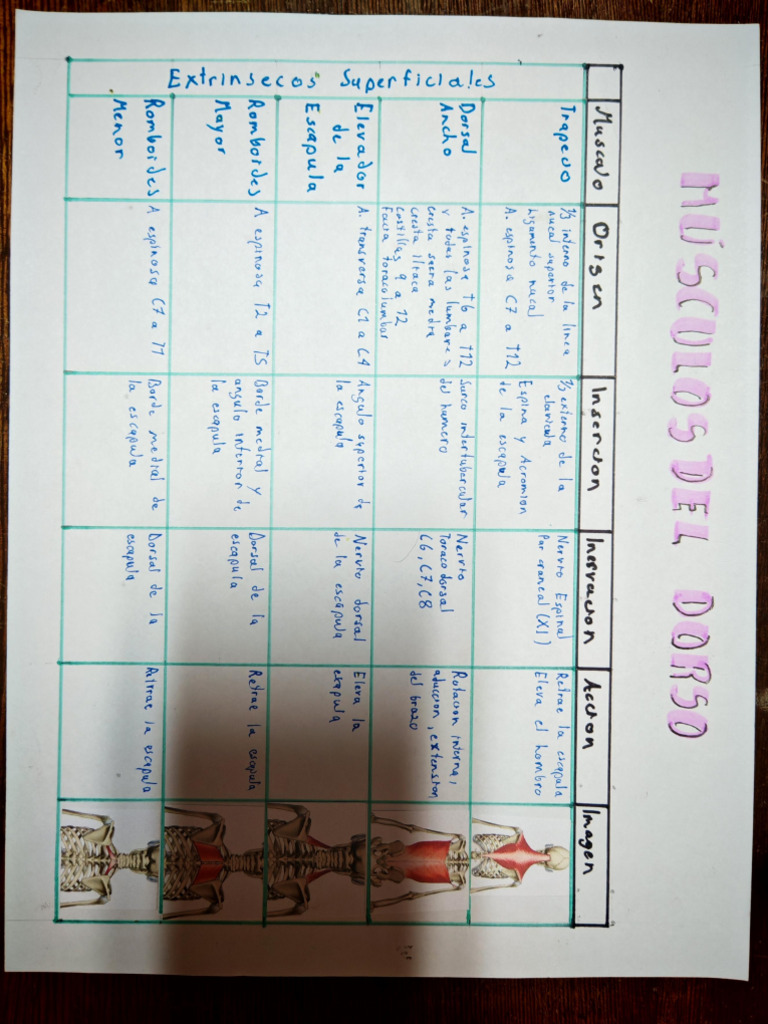 MÚSCULOS DEL DORSO
Musculo
Origen
Insercion
Inervacion
Accion
Imagen
Extrinsecos Superficiales
Trapecio
⅓ interno de la linea
nucal superior
Ligamento nucal
A. espinosa C7 a T12
⅓ externo de la
clavicula
Espina y Acromion
de la escapula
Nervio Espinal
Par craneal (XI)
Retrae la escapula
Eleva el hombro
Dorsal
Ancho
A. espinosa T6 a T12
y todas las lumbares
cresta sacra media
cresta iliaca
costillas 9 a 12
Facia toracolumbar
Surco intertubercular
del humero
Nervio
Toracodorsal
C6, C7, C8
Rotacion interna,
aduccion, extension
del brazo
Elevador
de la
Escapula
A. transversa C1 a C4
Angulo superior de
la escapula
Nervio dorsal
de la escapula
Eleva la
esapula
Romboides
Mayor
A espinosa T2 a T5
Borde medial y
angulo inferior de
la escapula
Dorsal de la
escapula
Retrae la escapula
Romboides
Menor
A espinosa C7 a T1
Borde medial de
la escapula
Dorsal de la
escapula
Retrae la escapula